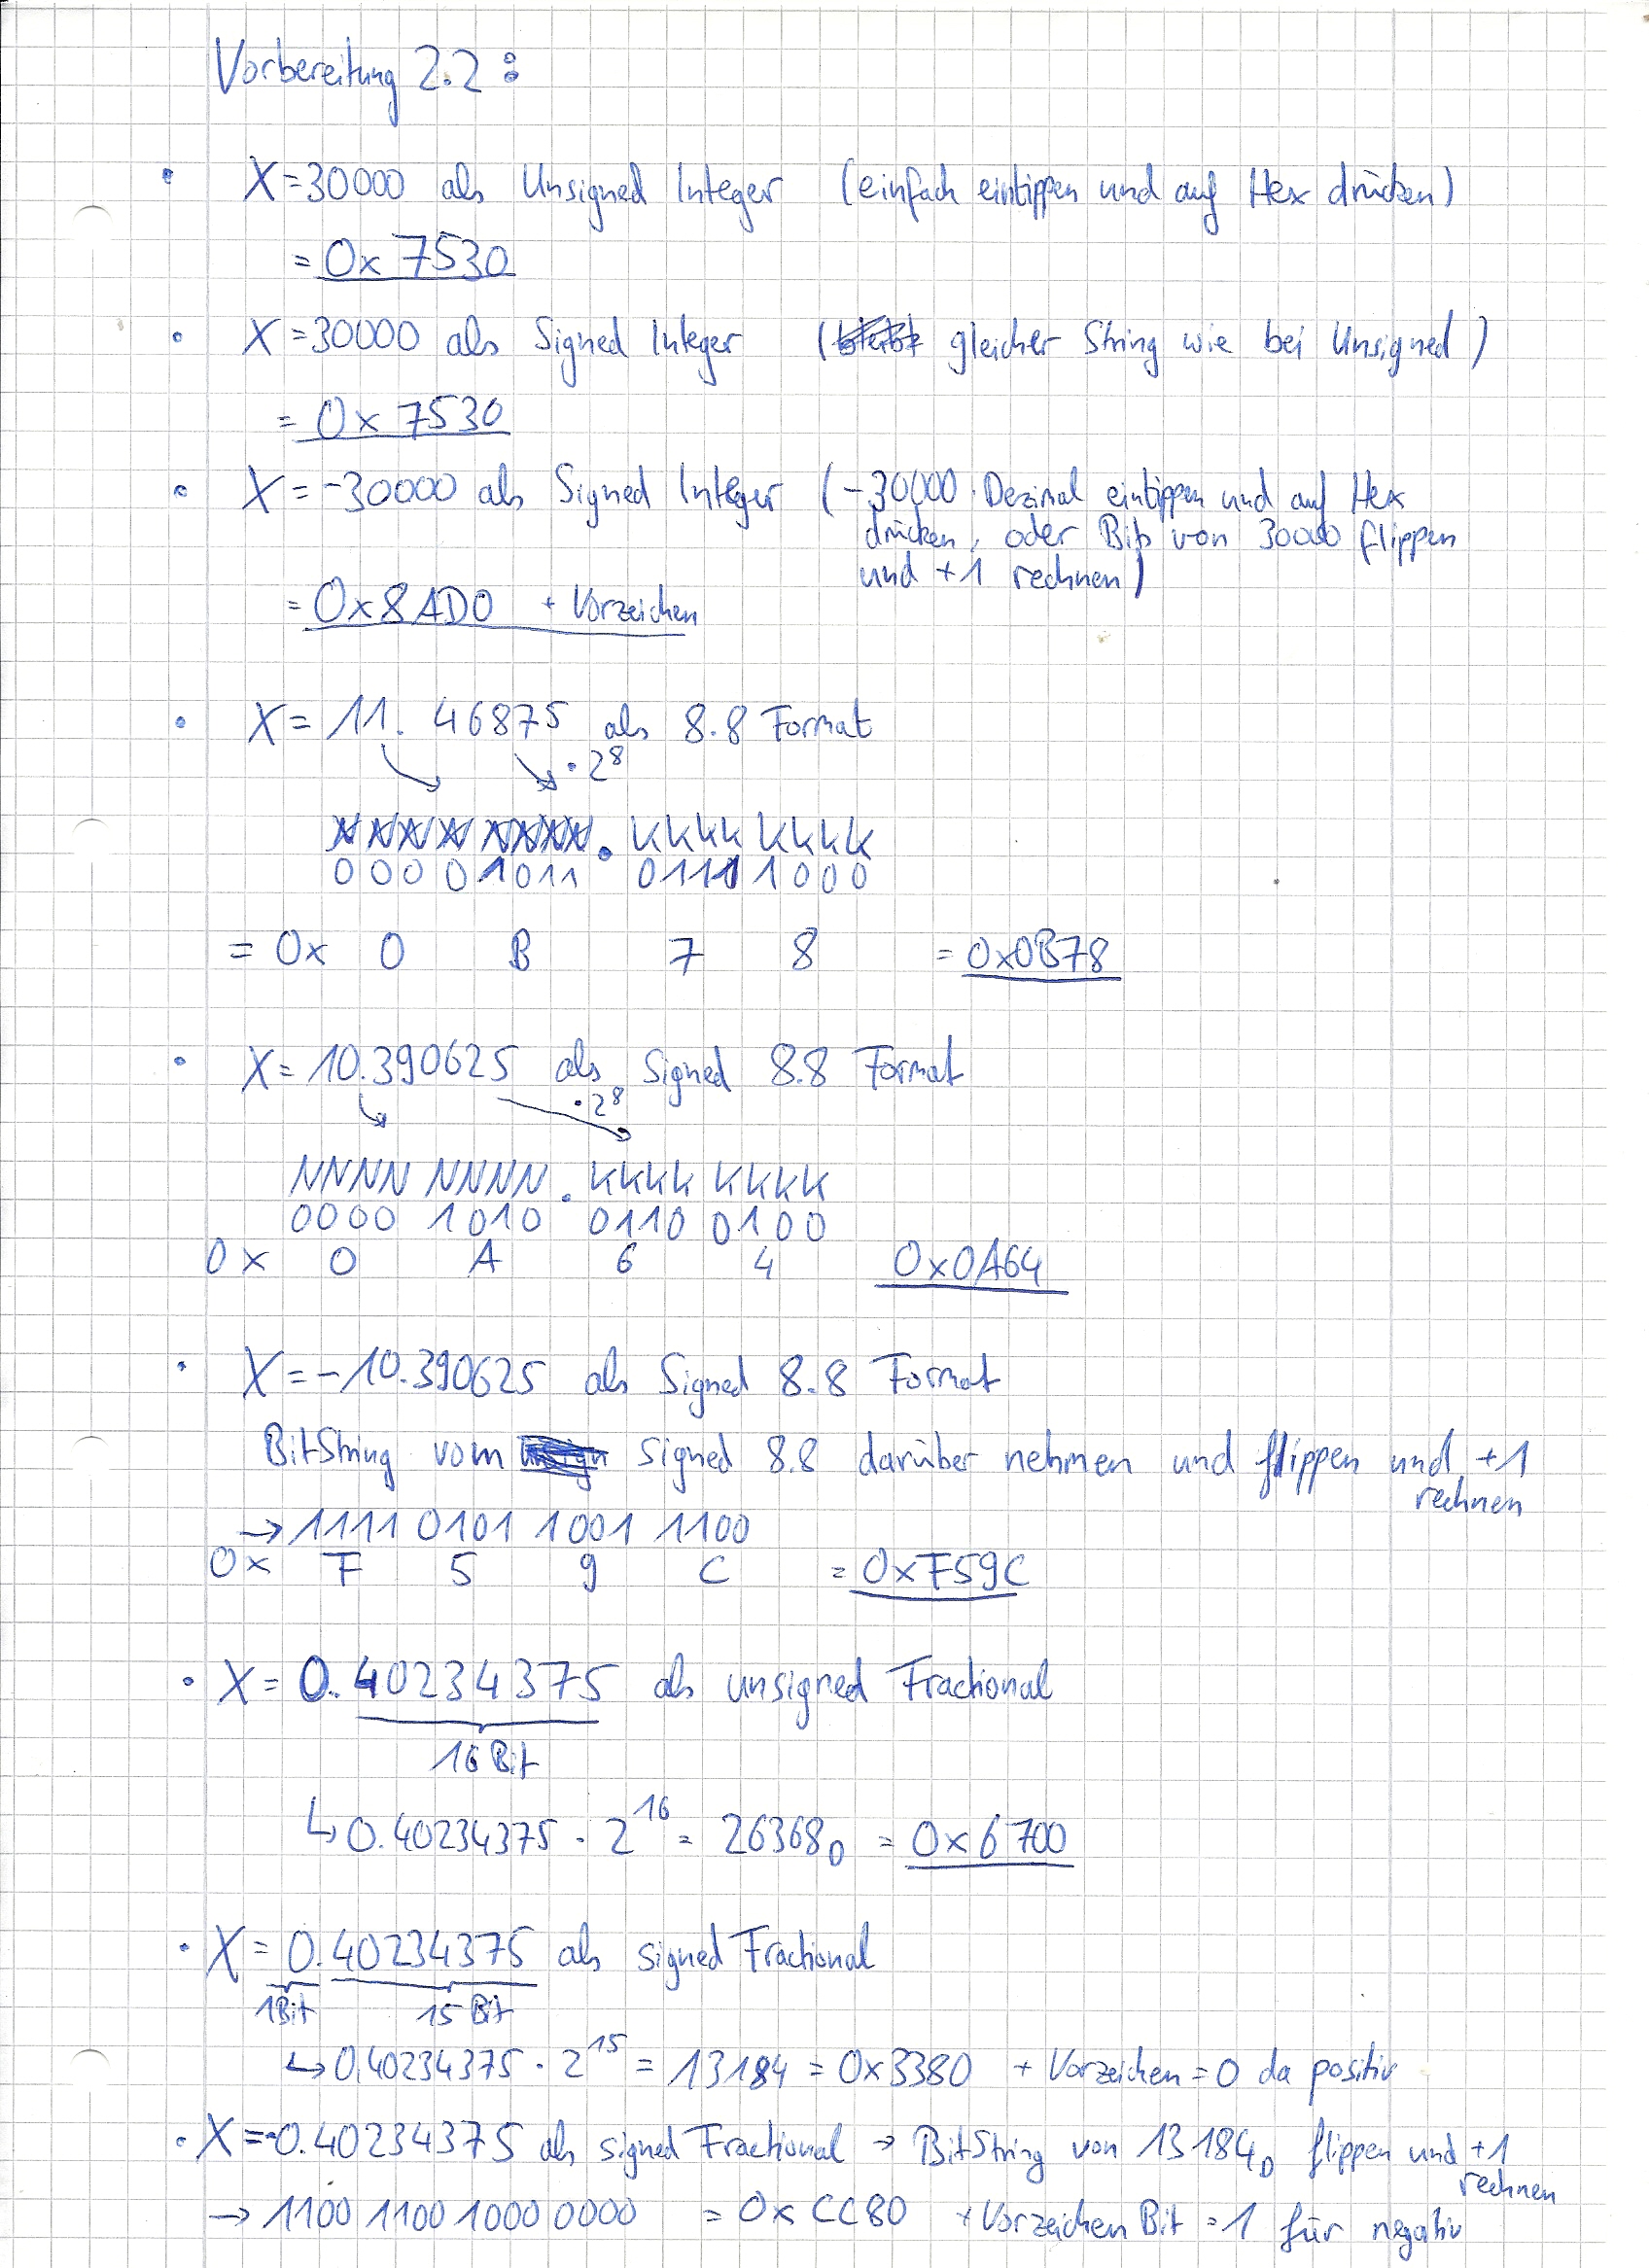 Vorbereitung 2.2:
• X=30000 als Unsigned Integer (einfach eintippen und auf Hex drücken)
= 0x 7530
• X=30000 als Signed Integer (bleibt gleicher String wie bei Unsigned)
= 0x 7530
• X=-30000 als Signed Integer (-30000 Dezimal eintippen und auf Hex
drücken, oder Bits von 30000 flippen
und +1 rechnen)
= 0x8AD0 + Vorzeichen
• X= 11.46875 als 8.8 Format
·2⁸
NNNN NNNN.KKKK KKKK
0000 1011 0111 1000
= 0x 0 B 7 8 = 0x0B78
• X= 10.390625 als Signed 8.8 Format
·2⁸
NNNN NNNN.KKKK KKKK
0000 1010 0110 0100
0x 0 A 6 4 0x0A64
• X=-10.390625 als Signed 8.8 Format
BitString vom Signed 8.8 darüber nehmen und flippen und +1
rechnen
→1111 0101 1001 1100
0x F 5 9 C = 0xF59C
• X= 0.40234375 als unsigned Fractional
16 Bit
↳0.40234375 · 2¹⁶ = 26368D = 0x6700
• X= 0.40234375 als signed Fractional
1Bit 15 Bit
↳0.40234375 · 2¹⁵ = 13184 = 0x3380 + Vorzeichen = 0 da positiv
• X=-0.40234375 als signed Fractional → BitString von 13184D flippen und +1
rechnen
→ 1100 1100 1000 0000 = 0xCC80 + Vorzeichen Bit = 1 für negativ